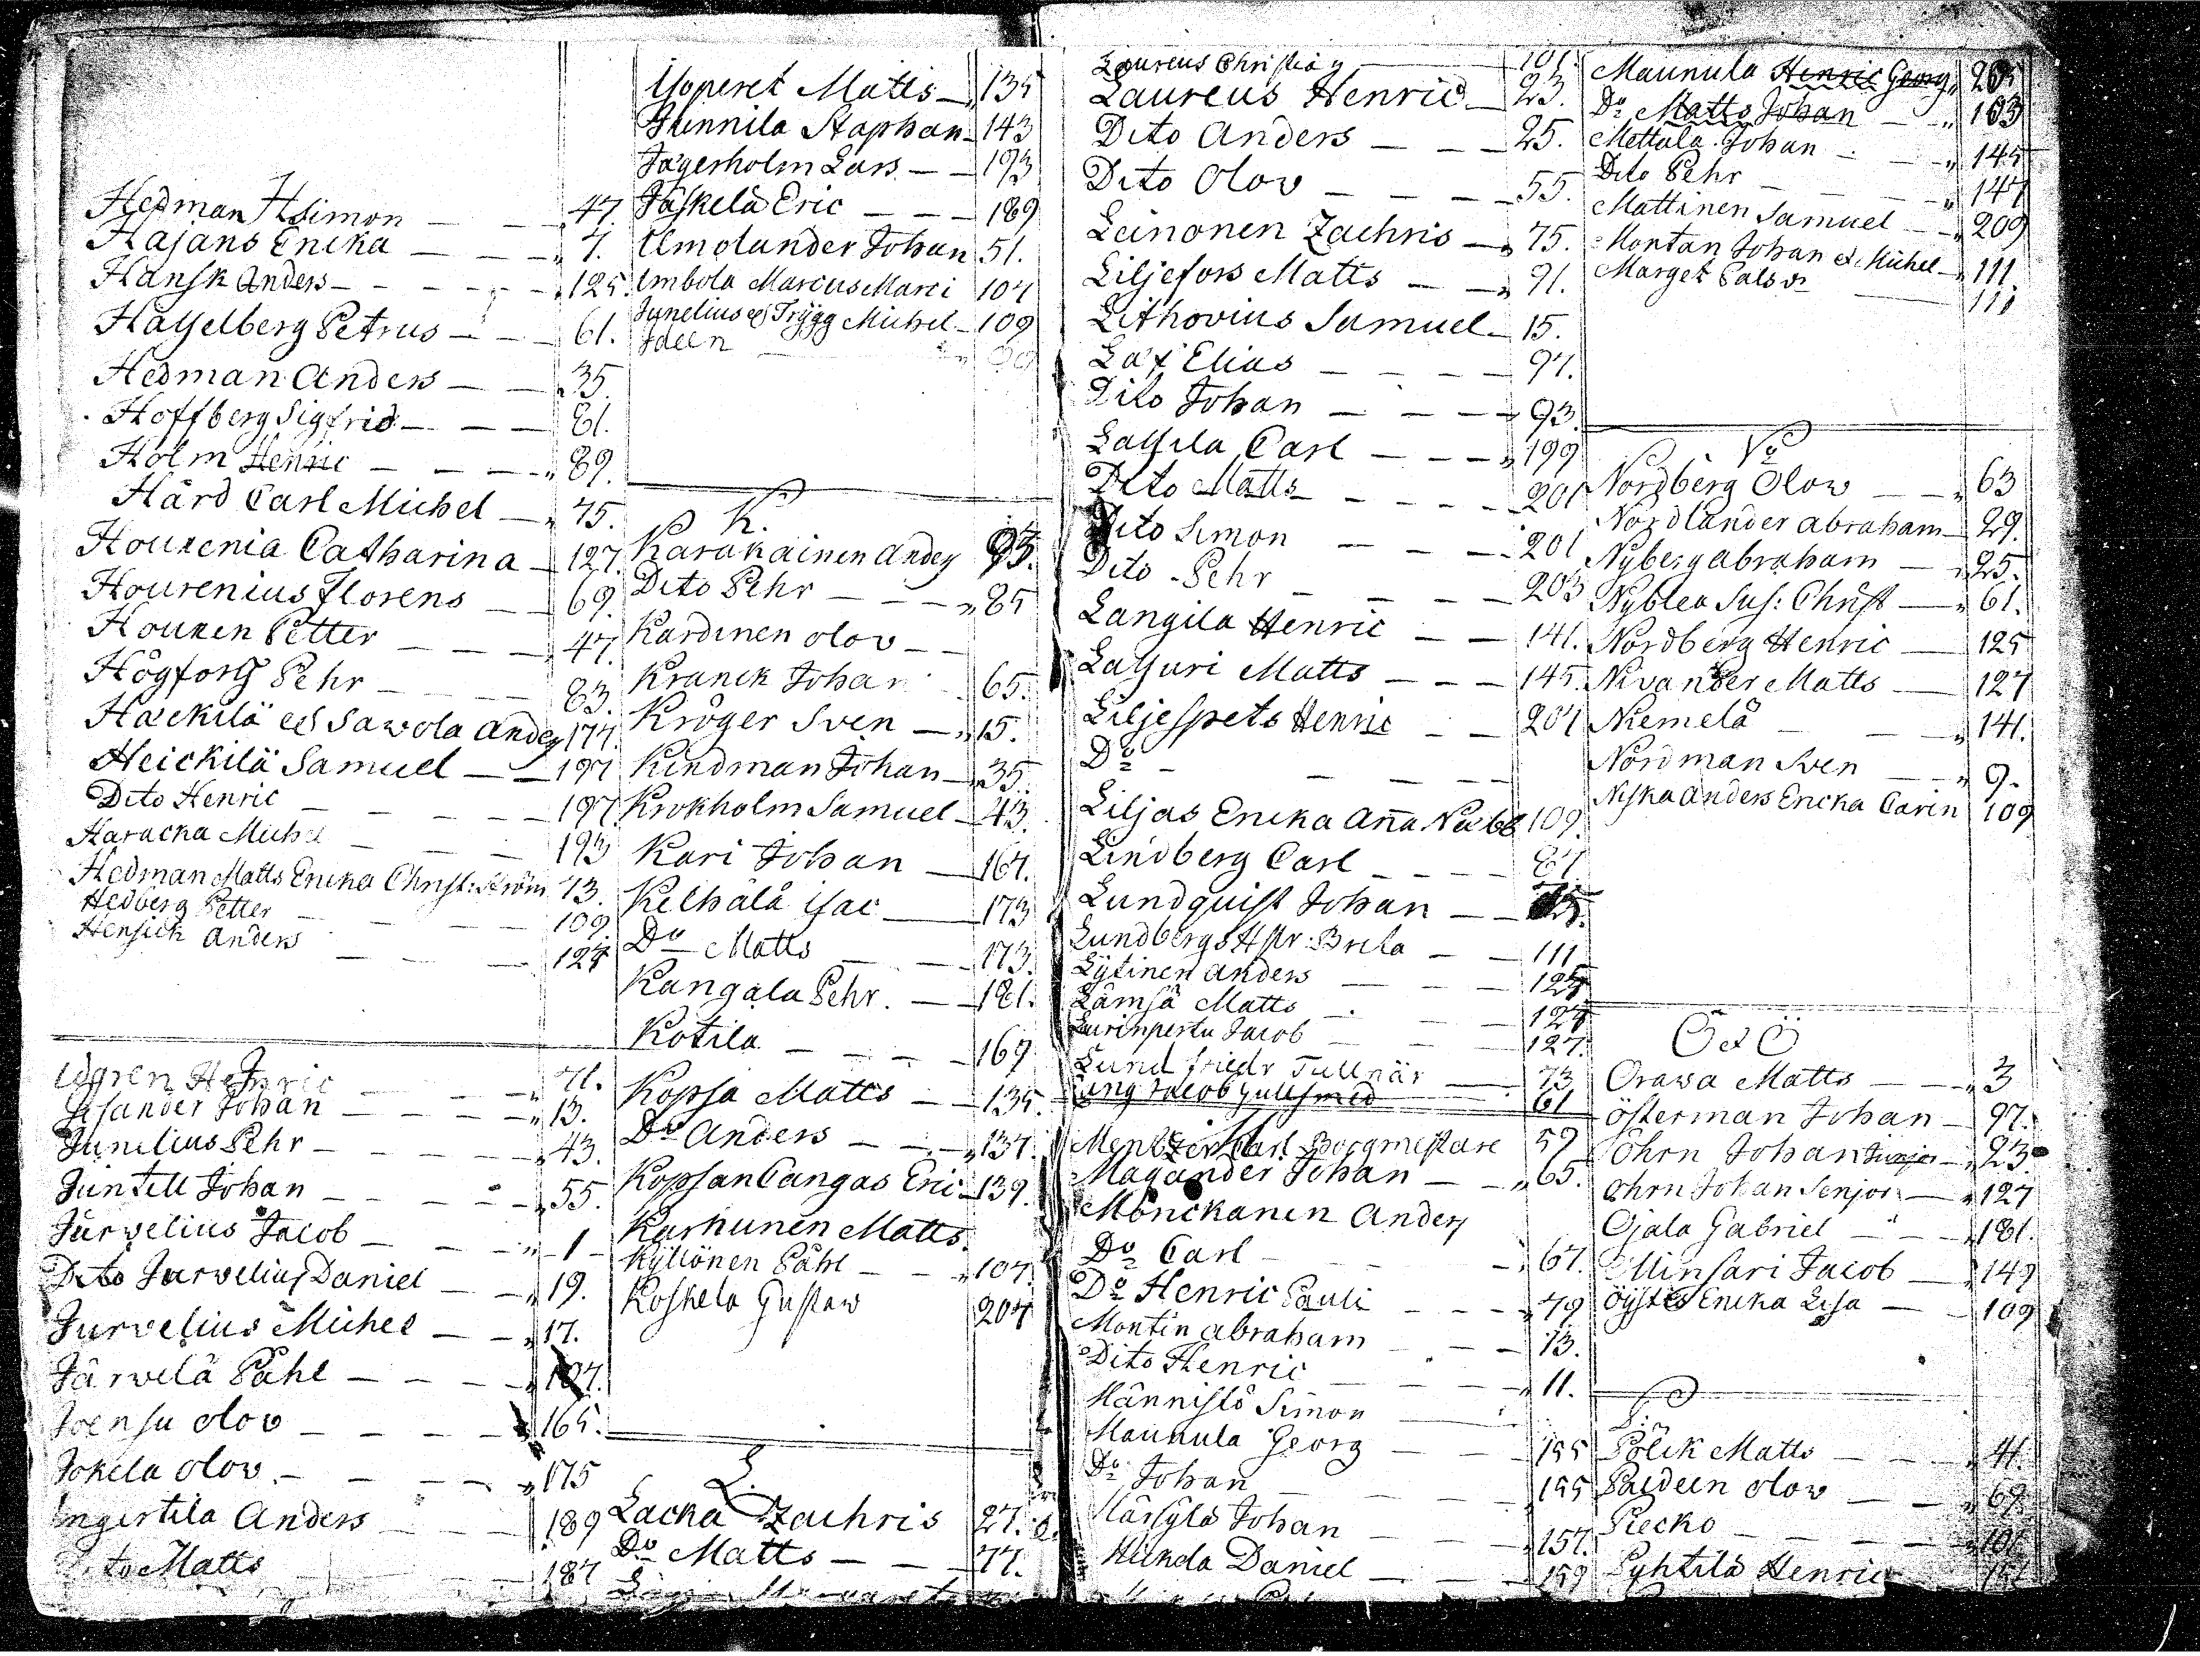 Hedman Hsimon — — 47.
Hajans Erika — — 7.
Hansk Anders — — 125.
Hasselberg Petrus — — 61.
Hedman Anders — — 35.
Hoffberg Sigfrid — — 81.
Holm Henric — — 89.
Hård Carl Michel — 75.
Hourenia Catharina — 127.
Hourenius Florens — — 69.
Houren Petter — — 47.
Högfors Pehr — — 83.
Hackilä & Sawola Anders 177.
Heickilä Samuel — — 197
Dito Henric — — 197
Haracka Michel — — 193
Hedman Matts Erika Christ: Ström 73.
Hedberg Petter — — 109.
Hensick Anders — — 127
J
Idgren Henric — — 71.
Johan — — 13.
Junelius Pehr — — 43.
Juntell Johan — — 55.
Järvelius Jacob — — 1
Dito Jarvelius Daniel — — 19.
Jurvelius Michel — — 17.
Järvelä Påhl — — 107.
Joensu Olov — — 165.
Jokela Olov — — 175
Ingertila Anders — — 189
Dito Matts — — 187
Matts — 135
Junnila Staphan — 143
Jägerholm Lars — — 193
Jäskelä Eric — — 189
Ilmolander Johan 51.
Imbola Marcus Marci 107
Junelius & Trÿgg Michel — 109
Ideen
K.
Karakainen Anders 95.
Dito Pehr — — 85
Kardinen Olov — —
Kranck Johan 65.
Kröger Sven — 15.
Kindman Johan — 35.
Krokholm Samuel — 43.
Kari Johan — 167.
Kelhälä Isac — 173
Do Matts — — 173.
Kangala Pehr — — 181.
Kotila — — 169
Kopsa Matts — — 135.
Do Anders — — 137.
Kopsankangas Eric — 139.
Karhunen Matts.
Kÿllönen Påhl — — 107.
Koskela Gustaw 207
L.
Lacka Zachris 27.
Do Matts — — 77.
Laureus Christian — 101.
Laureus Henric — 23.
Dito Anders — — 25.
Dito Olov — — 55.
Leinonen Zachris — 75.
Liljefors Matts — — 91.
Lithovius Samuel — 15.
Lax Elias — — 97.
Dito Johan — — 93.
Lassila Carl — — 199
Dito Matts — — 201
Dito Simon — — 201
Dito Pehr — — 203
Langila Henric — — 141.
Lassuri Matts — — 145.
Liljespets Henric — — 201
Do — —
Liljas Erika Anna 109.
Lindberg Carl — — 87.
Lundquist Johan — — 75.
Lundbergs Hstr: Brita — — 111
Lÿtinen Anders — — 125
Lämsä Matts — — 127
Laurinpertu Jacob — — 127.
Lund Friedr Tullnär — 73
Ling Jacob Gullsmed 61
M
Mentzer Carl Borgmestare 59
Magander Johan — — 65.
Mönckänen Anders
Do Carl — — 67.
Do Henric Pauli — — 79
Montin Abraham — — 13.
Dito Henric — — 11.
Männistö Simon —
Maunula Georg — — 155
Do Johan — — 155
Märsylä Johan — — 157.
Daniel — — 159
Maunula Henric Georg 205
Do Matts Johan — — 103
Mettala Johan — — 145
Dito Pehr — — 147
Mattinen Samuel — — 209
Montan Johan & Michel — 111.
Marget Palsdr — 111
N
Nordberg Olow — — 63
Nordlander Abraham — 29.
Nyberg Abraham — — 25.
Nyblea Sus: Christ — 61.
Nordberg Henric — 125
Nivander Matts — 127
Niemelä — — 141.
Nordman Sven — — 9.
Niska Anders Ericka Carin 109
O et Ö
Orawa Matts — — 3
Österman Johan — 97.
Öhrn Johan Junjor — 23.
Öhrn Johan Senjor — 127
Ojala Gabriel — — 181.
Ollinsari Jacob — 149
Öÿsti Erika Lisa — — 109
P.
Pölck Matts — — 41.
Paldeen Olow — — 69.
Piecko — — 101
Pyhtilä Henric 151